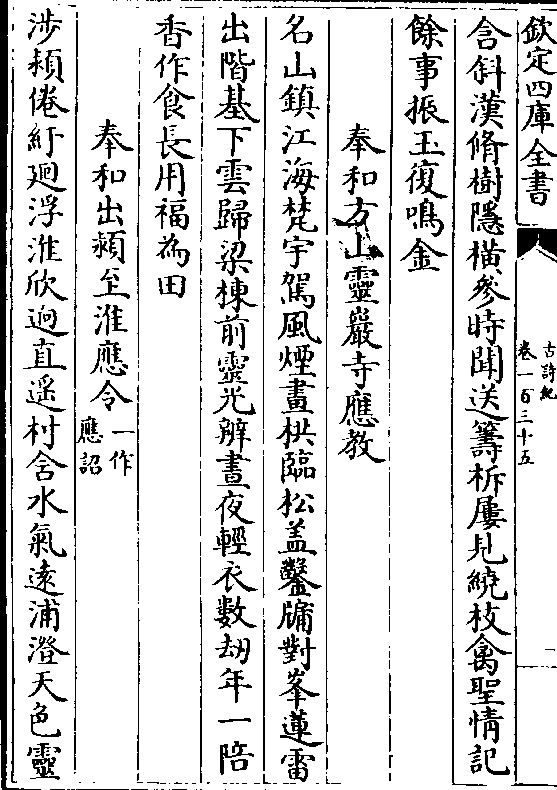 欽定四庫全書
古詩紀
卷一百三十五
含斜漢脩樹隱横參時聞送籌柝屢見繞枝禽聖情記
餘事振玉復鳴金
奉和方山靈巖寺應教
名山鎮江海梵宇駕風煙畫栱臨松盖鑿牖對峯蓮雷
出階基下雲歸梁棟前靈光辨晝夜輕衣數刼年一陪
香作食長用福為田
奉和出頴至淮應令一作應詔
涉頴倦紆廻浮淮欣逈直遥村含水氣逺浦澄天色靈